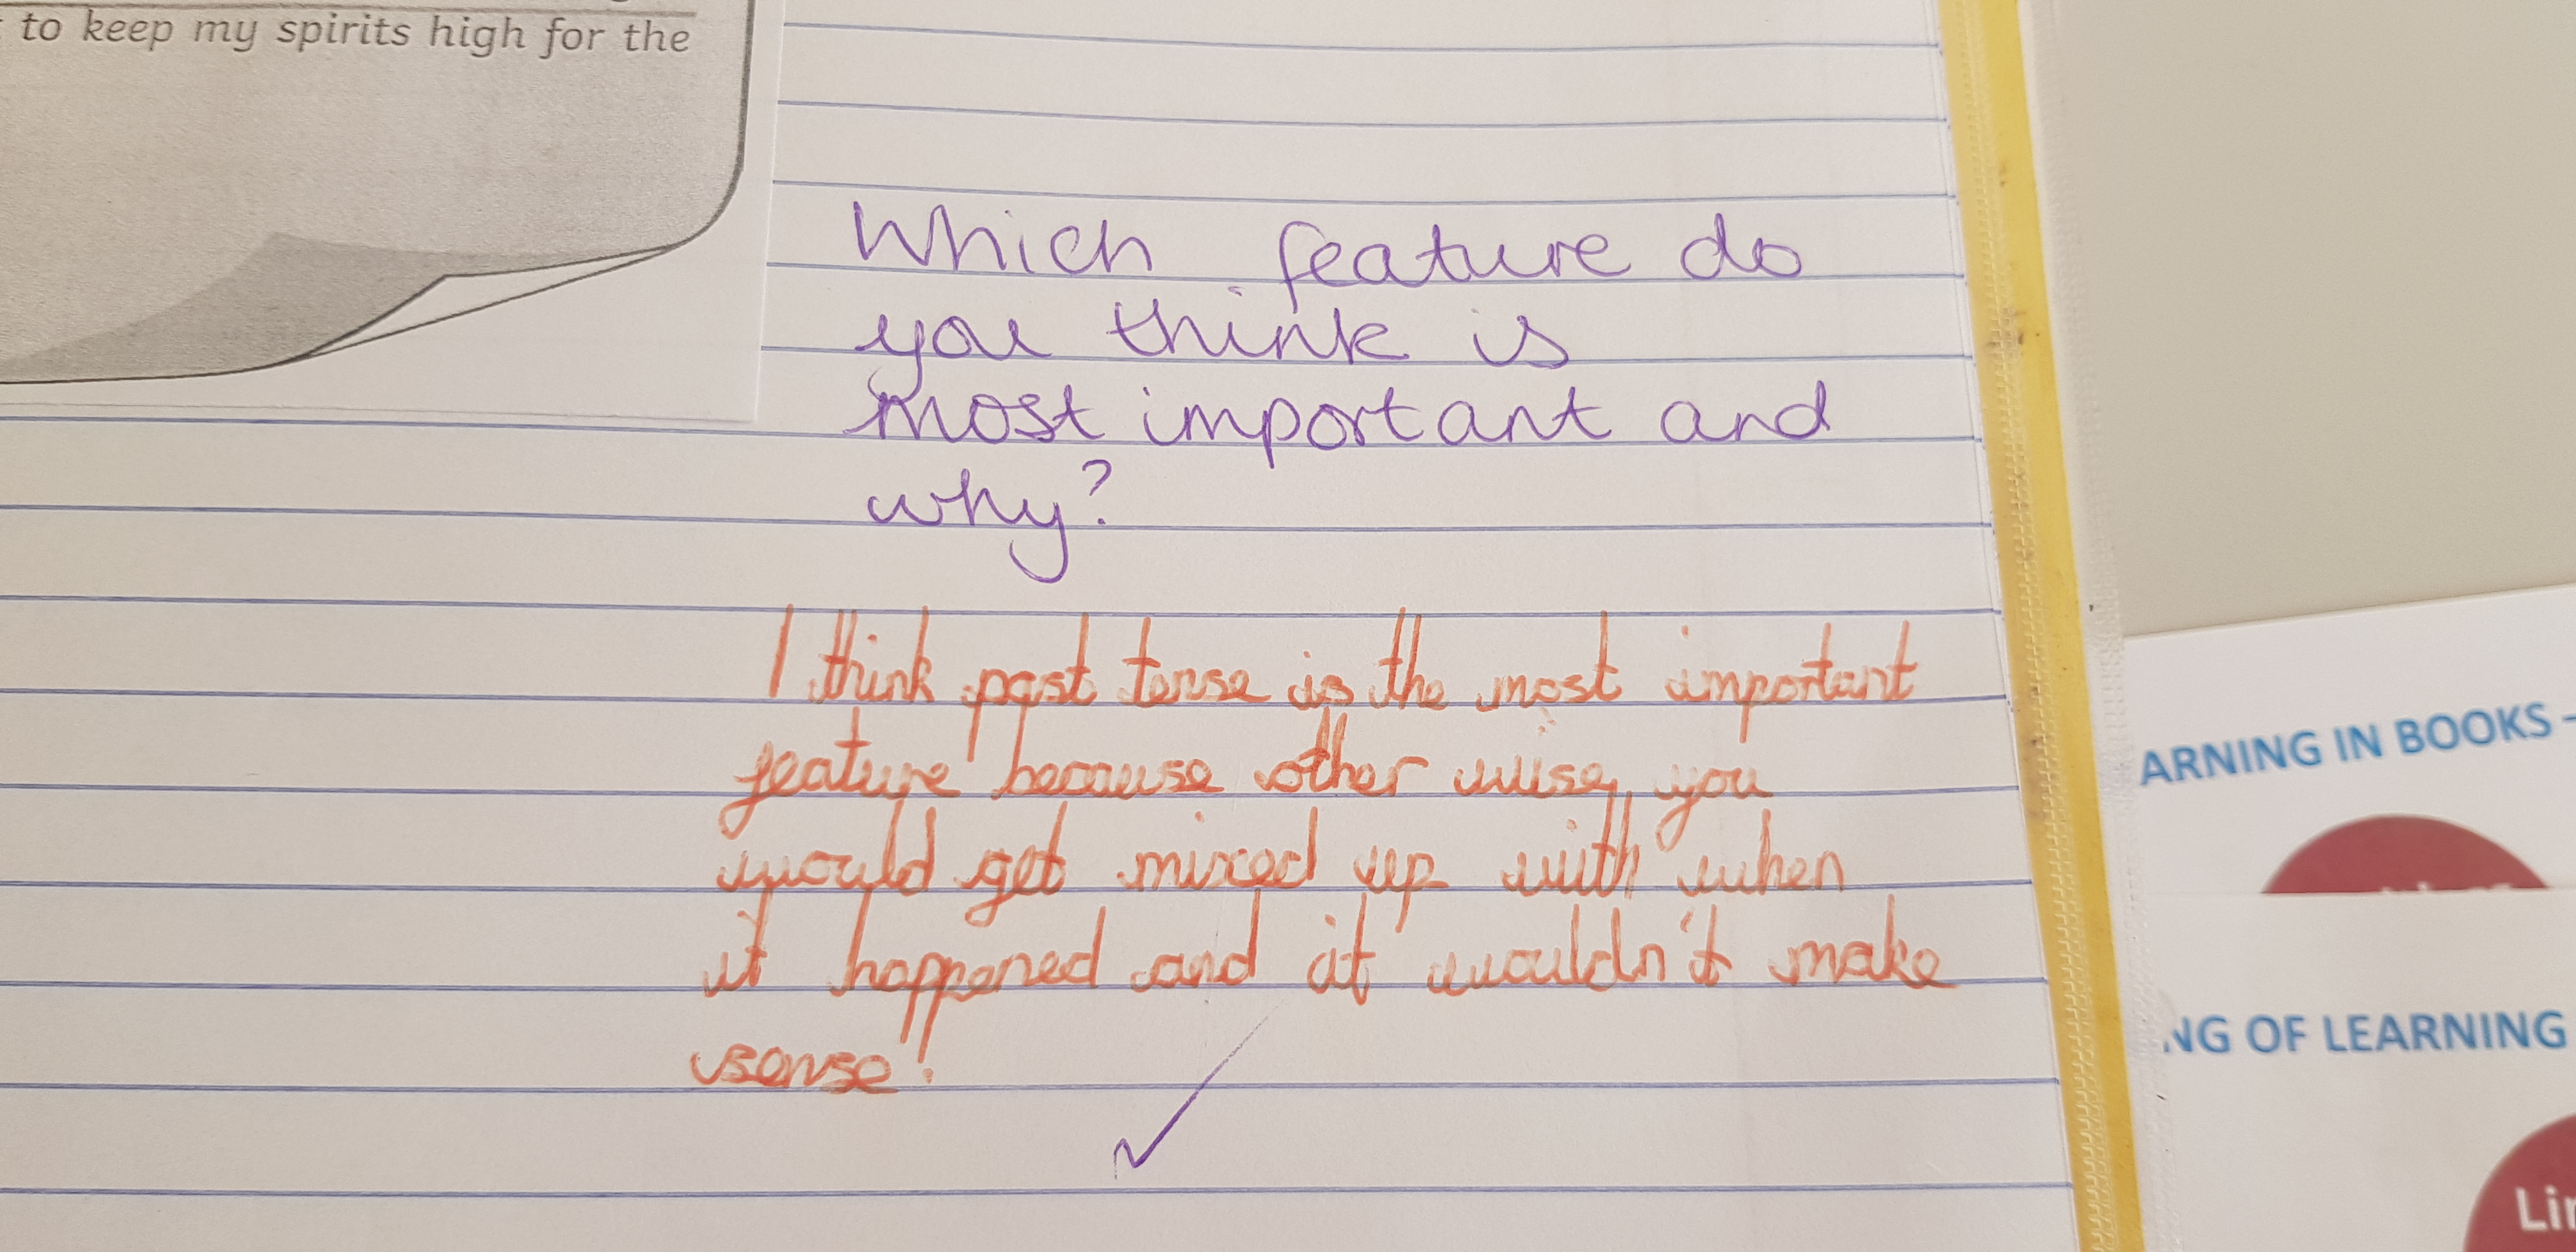 to keep my spirits high for the
Which feature do
you think is
most important and
why?
I think past tense is the most important
feature because other wise, you
would get mixed up with when
it happened and it wouldn't make
sense!
ARNING IN BOOKS -
NG OF LEARNING
Lin